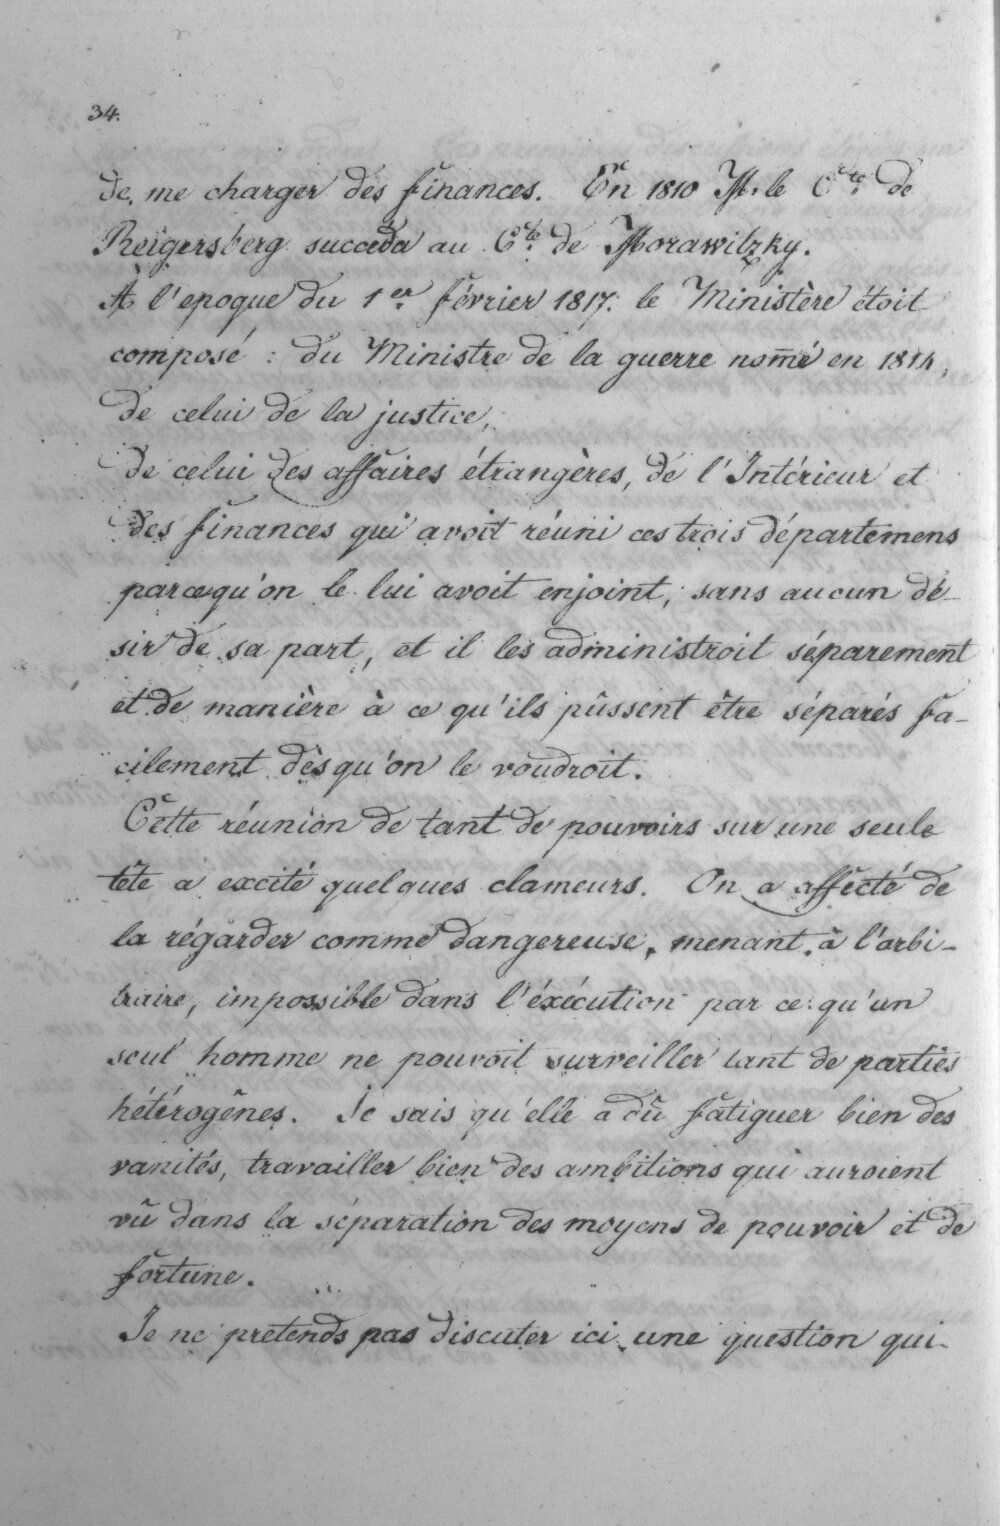 34.
de me charger des finances. En 1810 M. le C.te de
Reigersberg succeda au C.te de Morawitzky.
À l'epoque du 1er février 1817. le Ministère étoit
composé : du Ministre de la guerre nom̄é en 1814,
de celui de la justice,
de celui des affaires étrangères, de l'Intérieur et
des finances qui avoit réuni ces trois départemens
parcequ'on le lui avoit enjoint, sans aucun dé-
sir de sa part, et il les administroit séparement
et de manière à ce qu'ils pûssent être séparés fa-
cilement dès qu'on le voudroit.
Cette réunion de tant de pouvoirs sur une seule
tête a excité quelques clameurs. On a affecté de
la régarder comme dangereuse, menant à l'arbi-
traire, impossible dans l'éxécution par ce qu'un
seul homme ne pouvoit surveiller tant de parties
hétérogênes. Je sais qu'elle a dû fatiguer bien des
vanités, travailler bien des ambitions qui auroient
vû dans la séparation des moyens de pouvoir et de
fortune.
Je ne pretends pas discuter ici une question qui